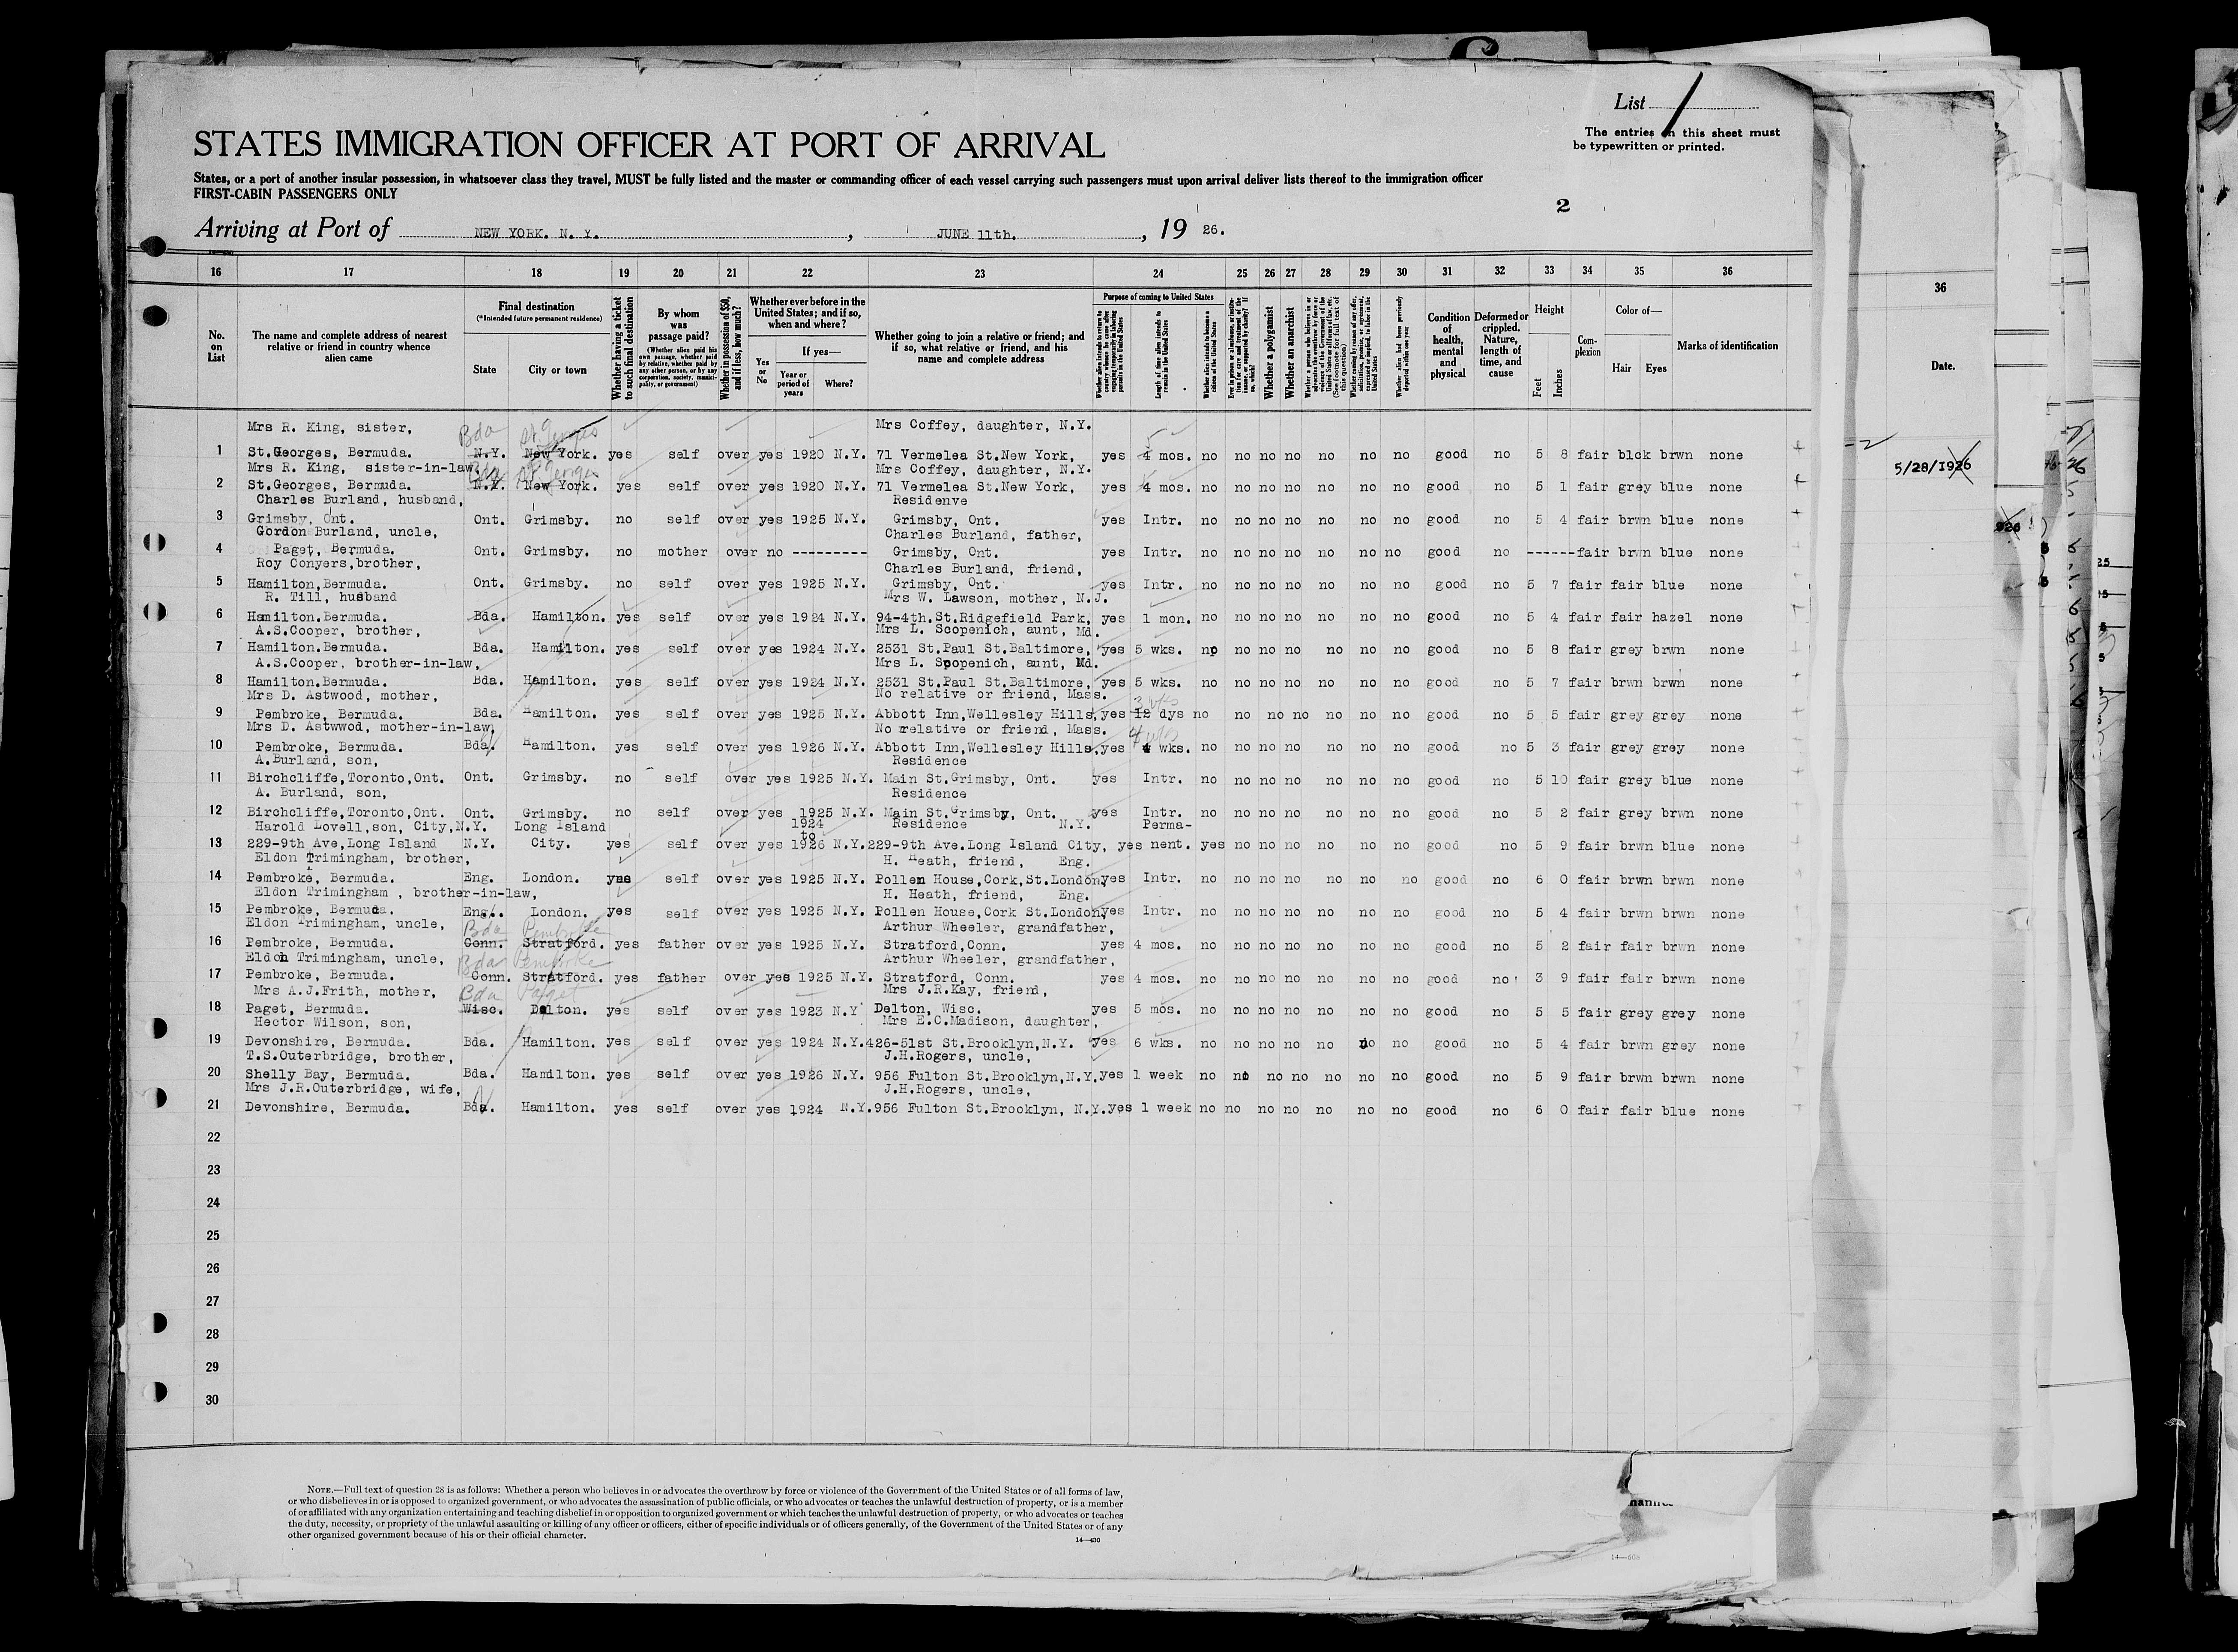 List 1
The entries on this sheet must
be typewritten or printed.
STATES IMMIGRATION OFFICER AT PORT OF ARRIVAL
States, or a port of another insular possession, in whatsoever class they travel, MUST be fully listed and the master or commanding officer of each vessel carrying such passengers must upon arrival deliver lists thereof to the immigration officer
FIRST-CABIN PASSENGERS ONLY
2
Arriving at Port of NEW YORK. N. Y. , JUNE 11th. , 19 26.
16 17 18 19 20 21 22 23 24 25 26 27 28 29 30 31 32 33 34 35 36
No. on List
The name and complete address of nearest relative or friend in country whence alien came
Final destination
(*Intended future permanent residence)
State
City or town
Whether having a ticket to such final destination
By whom was passage paid?
(Whether alien paid his own passage, whether paid by relative, whether paid by any other person, or by any corporation, society, municipality, or government)
Whether in possession of $50, and if less, how much?
Whether ever before in the United States; and if so, when and where?
Yes or No
If yes—
Year or period of years
Where?
Whether going to join a relative or friend; and if so, what relative or friend, and his name and complete address
Purpose of coming to United States
Length of time alien intends to remain in the United States
Whether alien intends to become a citizen of the United States
Whether a polygamist
Whether an anarchist
(See footnote for full text of this question)
Whether alien had been previously deported within one year
Condition of health, mental and physical
Deformed or crippled. Nature, length of time, and cause
Height
Feet
Inches
Com-plexion
Color of—
Hair
Eyes
Marks of identification
36
Date.
5/28/1926
Mrs R. King, sister, Bda St. Georges Mrs Coffey, daughter, N.Y. 5
1 St.Georges, Bermuda. N.Y. New York. yes self over yes 1920 N.Y. 71 Vermelea St.New York, yes 4 mos. no no no no no no no good no 5 8 fair blck brwn none
Mrs R. King, sister-in-law Bda St. Georges Mrs Coffey, daughter, N.Y.
2 St.Georges, Bermuda. N.Y. New York. yes self over yes 1920 N.Y. 71 Vermelea St.New York, yes 4 mos. no no no no no no no good no 5 1 fair grey blue none
Charles Burland, husband, Residenve
3 Grimsby, Ont. Ont. Grimsby. no self over yes 1925 N.Y. Grimsby, Ont. yes Intr. no no no no no no no good no 5 4 fair brwn blue none
Gordon Burland, uncle, Charles Burland, father,
4 Paget, Bermuda. Ont. Grimsby. no mother over no ---------- Grimsby, Ont. yes Intr. no no no no no no no good no ------fair brwn blue none
Roy Conyers,brother, Charles Burland, friend,
5 Hamilton,Bermuda. Ont. Grimsby. no self over yes 1925 N.Y. Grimsby, Ont. yes Intr. no no no no no no no good no 5 7 fair fair blue none
R. Till, husband Mrs W. Lawson, mother, N.J.
6 Hamilton.Bermuda. Bda. Hamilton. yes self over yes 1924 N.Y. 94-4th.St.Ridgefield Park, yes 1 mon. no no no no no no no good no 5 4 fair fair hazel none
A.S.Cooper, brother, Mrs L. Scopenich, aunt, Md.
7 Hamilton.Bermuda. Bda. Hamilton. yes self over yes 1924 N.Y. 2531 St.Paul St.Baltimore, yes 5 wks. no no no no no no no good no 5 8 fair grey brwn none
A.S.Cooper, brother-in-law, Mrs L. Scopenich, aunt, Md.
8 Hamilton.Bermuda. Bda. Hamilton. yes self over yes 1924 N.Y. 2531 St.Paul St.Baltimore, yes 5 wks. no no no no no no no good no 5 7 fair brwn brwn none
Mrs D. Astwood, mother, No relative or friend, Mass.
9 Pembroke, Bermuda. Bda. Hamilton. yes self over yes 1925 N.Y. Abbott Inn,Wellesley Hills, yes 12 dys no no no no no no no good no 5 5 fair grey grey none
Mrs D. Astwwod, mother-in-law, No relative or friend, Mass.
10 Pembroke, Bermuda. Bda. Hamilton. yes self over yes 1926 N.Y. Abbott Inn,Wellesley Hills, yes 4 wks. no no no no no no no good no 5 3 fair grey grey none
A.Burland, son, Residence
11 Birchcliffe,Toronto,Ont. Ont. Grimsby. no self over yes 1925 N.Y. Main St.Grimsby, Ont. yes Intr. no no no no no no no good no 5 10 fair grey blue none
A. Burland, son, Residence
12 Birchcliffe,Toronto,Ont. Ont. Grimsby. no self over yes 1925 N.Y. Main St.Grimsby, Ont. yes Intr. no no no no no no no good no 5 2 fair grey brwn none
Harold Lovell,son, City,N.Y. Long Island 1924 to Residence N.Y. Perma-
13 229-9th Ave,Long Island N.Y. City. yes self over yes 1926 N.Y. 229-9th Ave.Long Island City, yes nent. yes no no no no no no good no 5 9 fair brwn blue none
Eldon Trimingham, brother, H. Heath, friend, Eng.
14 Pembroke, Bermuda. Eng. London. yes self over yes 1925 N.Y. Pollen House,Cork,St.London, yes Intr. no no no no no no no good no 6 0 fair brwn brwn none
Eldon Trimingham , brother-in-law, H. Heath, friend, Eng.
15 Pembroke, Bermuda. Eng. London. yes self over yes 1925 N.Y. Pollen House,Cork St.London, yes Intr. no no no no no no no good no 5 4 fair brwn brwn none
Eldon Trimingham, uncle, Bda Pembroke Arthur Wheeler, grandfather,
16 Pembroke, Bermuda. Conn. Stratford. yes father over yes 1925 N.Y. Stratford,Conn. yes 4 mos. no no no no no no no good no 5 2 fair fair brwn none
Eldon Trimingham, uncle, Bda Pembroke Arthur Wheeler, grandfather,
17 Pembroke, Bermuda. Conn. Stratford. yes father over yes 1925 N.Y. Stratford, Conn. yes 4 mos. no no no no no no no good no 3 9 fair fair brwn none
Mrs A.J.Frith, mother, Bda Paget Mrs J.R.Kay, friend,
18 Paget, Bermuda. Wisc. Delton. yes self over yes 1923 N.Y Delton, Wisc. yes 5 mos. no no no no no no no good no 5 5 fair grey grey none
Hector Wilson, son, Mrs E.C.Madison, daughter,
19 Devonshire, Bermuda. Bda. Hamilton. yes self over yes 1924 N.Y. 426-51st St.Brooklyn,N.Y. yes 6 wks. no no no no no no no good no 5 4 fair brwn grey none
T.S.Outerbridge, brother, J.H.Rogers, uncle,
20 Shelly Bay, Bermuda. Bda. Hamilton. yes self over yes 1926 N.Y. 956 Fulton St.Brooklyn,N.Y. yes 1 week no no no no no no no good no 5 9 fair brwn brwn none
Mrs J.R.Outerbridge, wife, J.H.Rogers, uncle,
21 Devonshire, Bermuda. Bda. Hamilton. yes self over yes 1924 N.Y. 956 Fulton St.Brooklyn, N.Y. yes 1 week no no no no no no no good no 6 0 fair fair blue none
22
23
24
25
26
27
28
29
30
NOTE.—Full text of question 28 is as follows: Whether a person who believes in or advocates the overthrow by force or violence of the Government of the United States or of all forms of law,
or who disbelieves in or is opposed to organized government, or who advocates the assassination of public officials, or who advocates or teaches the unlawful destruction of property, or is a member
of or affiliated with any organization entertaining and teaching disbelief in or opposition to organized government or which teaches the unlawful destruction of property, or who advocates or teaches
the duty, necessity, or propriety of the unlawful assaulting or killing of any officer or officers, either of specific individuals or of officers generally, of the Government of the United States or of any
other organized government because of his or their official character.